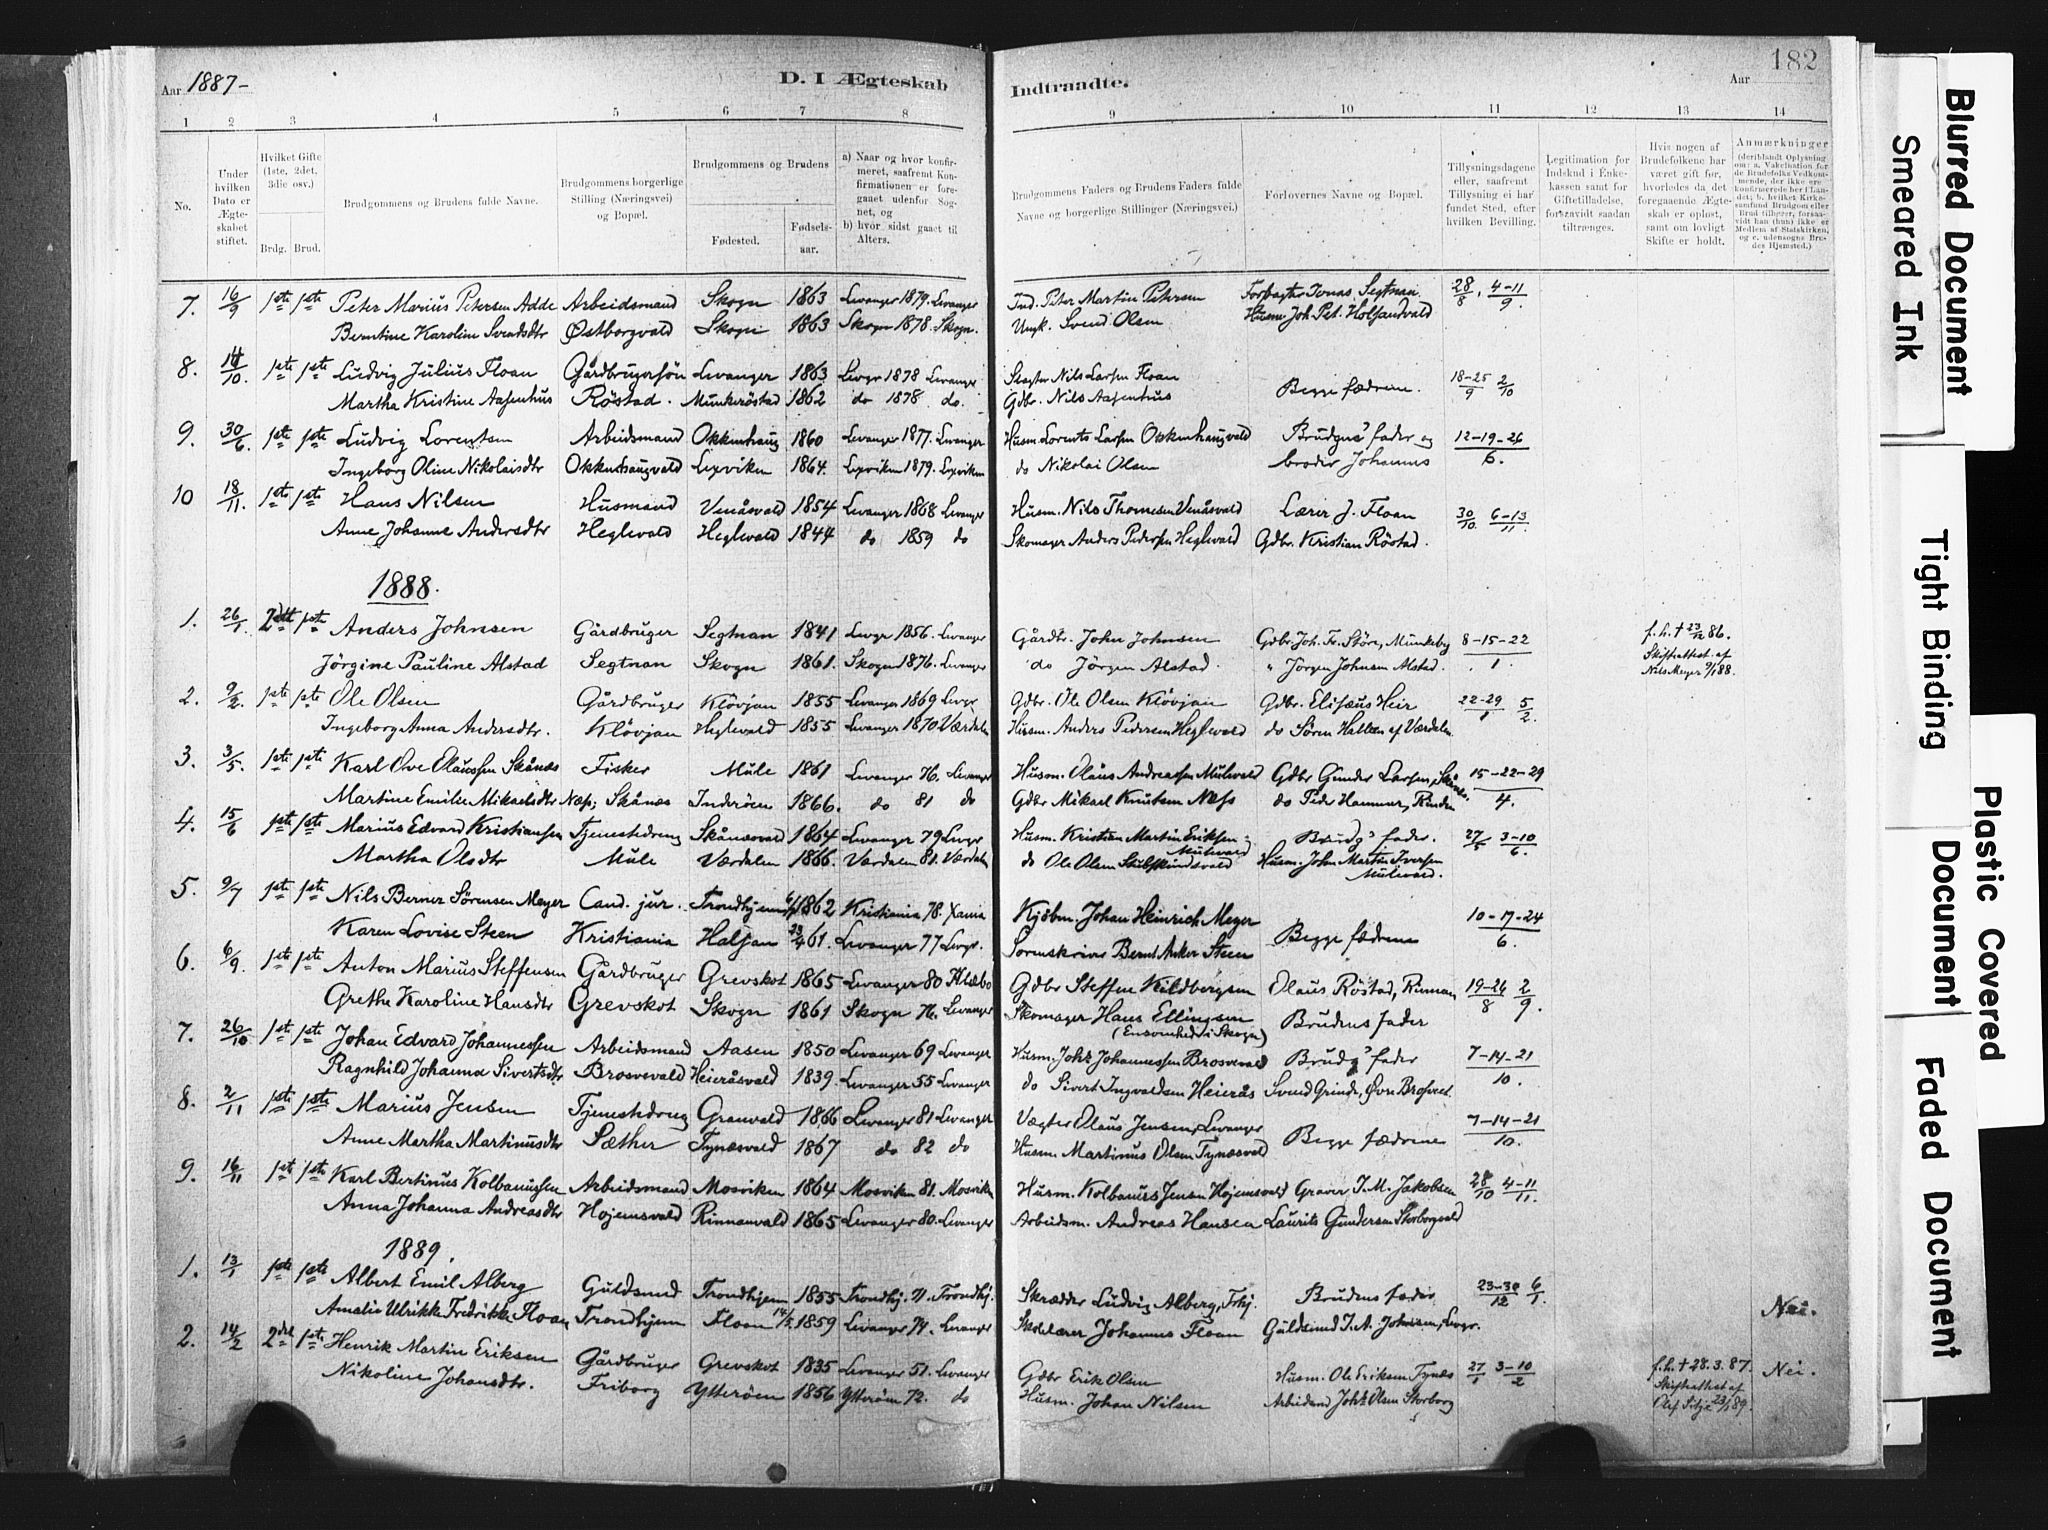 Aar 1887-
D. I Ægteskab Indtraadte.
Aar 182
1 2 3 4 5 6 7 8 9 10 11 12 13 14
No.
Under hvilken Dato er Ægteskabet stiftet.
Hvilket Gifte (1ste, 2det, 3die osv.)
Brdg. Brud.
Brudgommens og Brudens fulde Navne.
Brudgommens borgerlige Stilling (Næringsvei) og Bopæl.
Brudgommens og Brudens
Fødested.
Fødselsaar.
a) Naar og hvor konfirmeret, saafremt Konfirmationen er foregaaet udenfor Sognet, og
b) hvor sidst gaaet til Alters.
Brudgommens Faders og Brudens Faders fulde Navne og borgerlige Stillinger (Næringsvei.)
Forlovernes Navne og Bopæl.
Tillysningsdagene eller, saafremt Tillysning ei har fundet Sted, efter hvilken Bevilling.
Legitimation for Indskud i Enkekassen samt for Giftetilladelse, forsaavidt saadan tiltrænges.
Hvis nogen af Brudefolkene har været gift før, hvorledes da det foregaaende Ægteskab er opløst, samt om lovligt Skifte er holdt.
Anmærkninger
7. 16/9 1ste 1ste Peter Marius Petersen Adde Arbeidsmand Skogn 1863 Levanger 1879. Levanger Ind. Peter Martin Petersen Jonas Segtnan 28/8, 4-11/9
Berntine Karoline Svendsdtr Østborgvald Skogn 1863 Skogn 1878. Skogn. Ungk. Svend Olsen Husm. Joh. Pet. Holsandvald
8. 14/10 1ste 1ste Ludvig Julius Floan Gårdbrugersön Levanger 1863 Levgr 1878 Levanger Nils Larsen Floan 18-25/9 2/10
Martha Kristine Aasenhus Röstad. Munkeröstad 1862 do 1878 do. Gdbr. Nils Aasenhus Begge fædrene.
9. 30/6 1ste 1ste Ludvig Lorentsen Arbeidsmand Okkenhaug 1860 Levanger 1877. Levanger Husm. Lorents Larsen Okkenhaugvald Brudgms fader og 12-19-26/6.
Ingeborg Oline Nikolaisdtr Okkenhaugvald Lexviken 1864. Lexviken 1879. Lexviken do Nikolai Olsen broder Johannes
10 18/11. 1ste 1ste Hans Nilsen Husmand Venåsvald 1854 Levanger 1868 Levanger Husm. Nils Thomesen Venåsvald Lærer J. Floan 30/10 6-13/11.
Anne Johanne Andersdtr Heglevald Heglevald 1844 do 1859 do Skomager Anders Pedersen Heglevald Gdbr. Kristian Röstad.
1888.
1. 26/1. 2det 1ste Anders Johnsen Gårdbruger Segtnan 1841 Levgr 1856. Levanger Gårdbr. John Johnsen Gdbr. Joh. Fr. Störe, Munkeby 8-15-22/1. f. h. † 23/12 86.
Jörgine Pauline Alstad Segtnan Skogn 1861. Skogn 1876. Levanger do Jörgen Alstad. " Jörgen Johnsen Alstad. Skifteattest. af
Nils Meyer 9/1 88.
2. 9/2. 1ste 1ste Ole Olsen Gårdbruger Klövjan 1855 Levanger 1869 Levgr. Gdbr. Ole Olsen Klövjan Gdbr. Elisæus Heir 22-29/1 5/2.
Ingeborg Anna Andersdtr. Klövjan Heglevald 1855 Levanger 1870 Værdalen Husm. Anders Pedersen Heglevald do Sören Hallem af Værdalen
3. 3/5. 1ste 1ste Karl Ove Olaussen Skånes Fisker Mule 1861 Levanger 76. Levanger Husm. Olaus Andreassen Mulevald Gdbr Gunder Larsen, Skånes. 15-22-29/4.
Martine Emilie Mikaelsdtr Næss; Skånes Inderöen 1866. do 81 do Gdbr Mikael Knutsen Næss do Peder Hammer, Rinden
4. 15/6 1ste 1ste Marius Edvard Kristiansen Tjenestedreng Skånesvald 1864 Levanger 79 Levgr Husm. Kristian Martin Eriksen Mulevald Brudgs fader. 27/5 3-10/6.
Martha Olsdtr Mule Værdalen 1866. Værdalen 81. Værdalen do Ole Olsen Stubskindsvald Husm. John Martin Iversen Mulevald.
5. 9/7 1ste 1ste Nils Berner Sørensen Meyer Cand. jur. Trondhjem 1862 Kristiania 78. Xania Kjöbm. Johan Heinrich Meyer 10-17-24/6.
Karen Lovise Steen Kristiania Halsan 23/4 61. Levanger 77 Levgr. Sorenskriver Bernt Anker Steen Begge fædrene
6. 6/9. 1ste 1ste Anton Marius Steffensen Gårdbruger Grevskot 1865 Levanger 80 Klæbo Gdbr Steffen Kildbergsen Olaus Röstad, Rinnan 19-26/8 2/9.
Grethe Karoline Hansdtr Grevskot Skogn 1861 Skogn 76. Levanger Skomager Hans Ellingsen Brudens fader
(Eusomhed i Skogn)
7. 26/10 1ste 1ste Johan Edvard Johannessen Arbeidsmand Aasen 1850 Levanger 69 Levanger Husm. Johs Johannessen Brosvevald Brudgs fader 7-14-21/10.
Ragnhild Johanna Sivertsdtr Brosvevald Heieråsvald 1839. Levanger 55 Levanger do Sivert Ingvaldsen Heierås Svend Grinde, Øvre Brosveet
8. 2/11 1ste 1ste Marius Jensen Tjenestedreng Granvald 1866 Levanger 81 Levanger Vægter Olaus Jensen, Levanger 7-14-21/10.
Anne Martha Martinusdtr Sæther Tynæsvald 1867 do 82 do Husm. Martinus Olsen Tynæsvald Begge fædrene
9. 16/11 1ste 1ste Karl Bertinus Kolbanussen Arbeidsmand Mosviken 1864 Mosviken 81. Mosviken Husm. Kolbanus Jensen Hojemsvald Graver J. M. Jakobsen 28/10 4-11/11.
Anna Johanna Andreasdtr Hojemsvald Rinnanvald 1865 Levanger 80. Levanger Arbeidsm. Andreas Hansen Laurits Gundersen Storborgvald
1889.
1. 13/1 1ste 1ste Albert Emil Alberg Guldsmed Trondhjem 1855 Trondhj. 71. Trondhj. Skrædder Ludvig Alberg, Trhj. Brudens fader 23-30/12 6/1.
Amalie Ulrikke Fredrikke Floan Trondhjem Floan 14/5 1859 Levanger 74. Levanger Skolelærer Johannes Floan Guldsmed I. A. Johnsen, Levgr. Nei.
2. 14/2 2det 1ste Henrik Martin Eriksen Gårdbruger Grevskot 1835 Levanger 51. Levanger Gdbr Erik Olsen Husm. Ole Eriksen Tynæs 27/1 3-10/2 f. h. † 28.3.87. Nei.
Nikoline Johansdtr. Friborg Ytterøen 1856 Ytterøen 72. do Husm. Johan Nilsen Arbeidsmd Johs Olsen Storborg Skifteattest af
23/1 89.
Blurred Document
Smeared Ink
Tight Binding
Plastic Covered Document
Faded Document